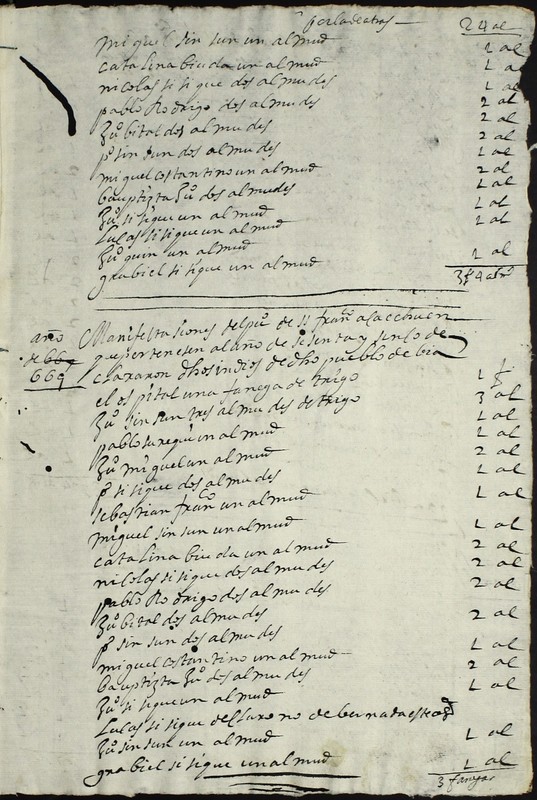 por la de atras 24 al
miguel sin sun un almud 1 al
catalina biuda un almud 1 a
nicolas si sique dos almudes 1 al
pablo Rodrigo dos almudes 2 al
Juº bital dos almudes 2 al
pº sin sun dos almudes 2 al
miguel costantino un almud 1 al
bauptizta Juº dos almudes 2 al
Juº si sique un almud 1 al
lucas si sique un almud 1 al
Juº quin un almud 1 al
grabiel si sique un almud 1 al
3f 4 al
Manifestasiones del puº de s franº
año que pertenesen al año de sesenta y sinco de
de 66 clararon dhos indios de dho pueblo de
669 el ospital una fanega de trigo 1 f
Juº sin sun tres almudes de trigo 3 al
pablo surequi un almud 1 al
Juº miguel un almud 1 al
pº si sique dos almudes 2 al
sebastian franº un almud 1 al
miguel sin sun un almud 1 al
catalina biuda un almud 1 al
nicolas si sique dos almudes 2 al
pablo Rodrigo dos almudes 2 al
Juº bital dos almudes 2 al
pº sin sun dos almudes 2 al
miguel costantino un almud 1 al
bauptizta Juº dos almudes 2 al
Juº si sique un almud 1 al
lucas si sique
Juº sin sun un almud 1 al
grabiel si sique un almud 1 al
3 fanegas